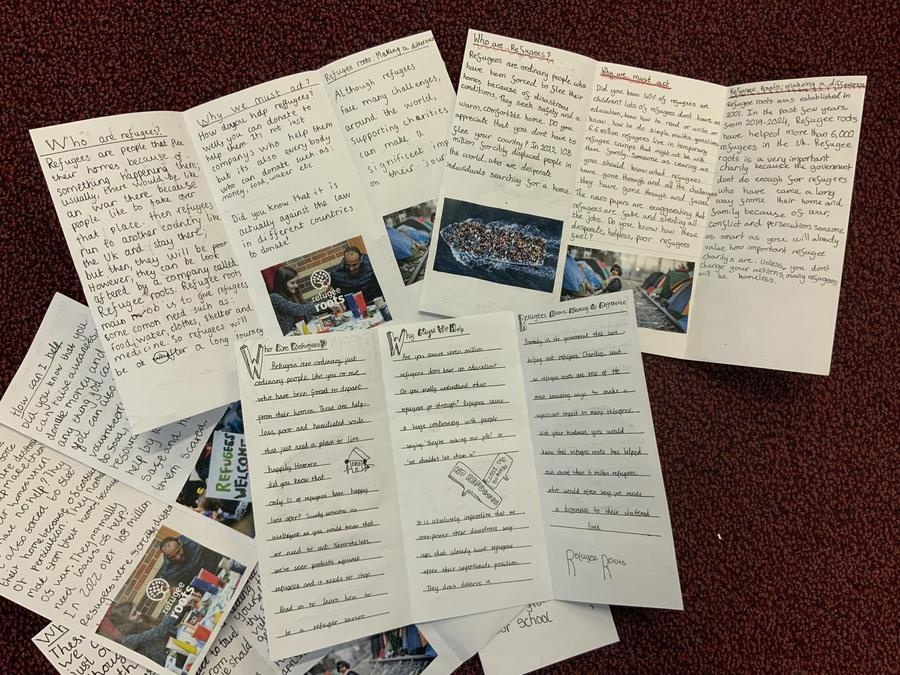 Who are refugees?
Refugees are people that flee
their homes because of
something happening there,
usually, there would be like
an war there because
people like to take over
that place then refugees
go to another country like
the UK and stay there,
but then, they will be poor.
However, they can be look
aftered by a company called
Refugee roots. Refugee roots
main is to give refugees
some common need such as:
food, water, clothes, shelter and
medicine. So refugees will
be ok after a long journey
Why we must act?
How do you help refugees?
Well you can donate to
help them. It's not just
company's who help them
but its also every body
who can donate such as:
money, food, water etc.
Did you know that it is
actually against the law
in different countries
to donate.
refugee
roots
Refugee roots: Making a difference
Although refugees
face many challenges,
around the world,
supporting charities
can make a
significant imp
on their jour
Who are Refugees?
Refugees are ordinary people who
have been forced to flee their
homes because of disastrous
conditions. They seek safety and a
warm, comfortable home. Do you
appreciate that you don't have to
flee your country? In 2022 108
million forcibly displaced people in
the world, who are desperate
individuals searching for a home.
Why we must act
Did you know 40% of refugees are
children? Lots of refugees don't have an
education, know how to read or write or
know how to do simple maths questions
6.6 million refugees live in temporary
refugee camps that might not be with
their family. Someone as caring as
you should know what refugees
have gone through and all the challenges
they have gone through and faced.
The news papers are exaggerating that
refugees are fake and stealing all
the jobs. Do you know how these
desperate, helpless, poor refugees
feel?
Refugee Roots: making a difference
Refugee roots was established in
2001. In the past few years,
from 2019-2024, Refugee roots
have helped more than 6,000
refugees in the UK. Refugee
roots is a very important
charity because the government
dont do enough for refugees
who have came a long
way from their home and
family because of war,
conflict and persecution. Someone
as smart as you will already
value how important refugee
charitys are. Unless you dont
change your actions, many refugees
will be homeless.
Who Are Refugees?
Refugees are ordinary just
ordinary people like you or me,
who have been forced to depart
from their homes. These are help-
less poor and humiliated souls
that just need a place to live
happily. However
did you know that
only 1% of refugees have happy
lives after? Surely someone as
intelligent as you would know that
we need to act. Nevertheless,
we've seen protests against
refugees and it needs to stop.
Read on to learn how to
be a refugee savior
Why Must We Help
Are you aware seven million
refugees dont have an education?
Do you really understand what
refugees go through? Refugees cause
a huge controversy with people
saying "They're taking our jobs" or
"we shouldnt let them in"
NO REFUGEES
It is absolutely imperative that we
overpower these disastrous say-
ings that already hurt refugees
after their unfortunate position
They dont deserve it.
Refugees Roots Making A Difference
Insanely, the government that isnt
helping out refugees. Charities such
as refugee roots are one of the
most amazing ways to make a
significant impact to many refugees.
With your kindness, you would
know that refugee roots has helped
out more than 6 million refugees.
other would often say we made
a difference to their shattered
lives
Refugee Roots
How can I help
Did you know that you
can raise awareness,
donate money and
any thing you can
You can also
volunteer
to food
resou
help by
Sats and h
them scared.
REFUGEES
WELCOME
of war. They normally
need loads of help!
In 2022 over 108 million
Refugees were forcibly
refugee
roots
our school